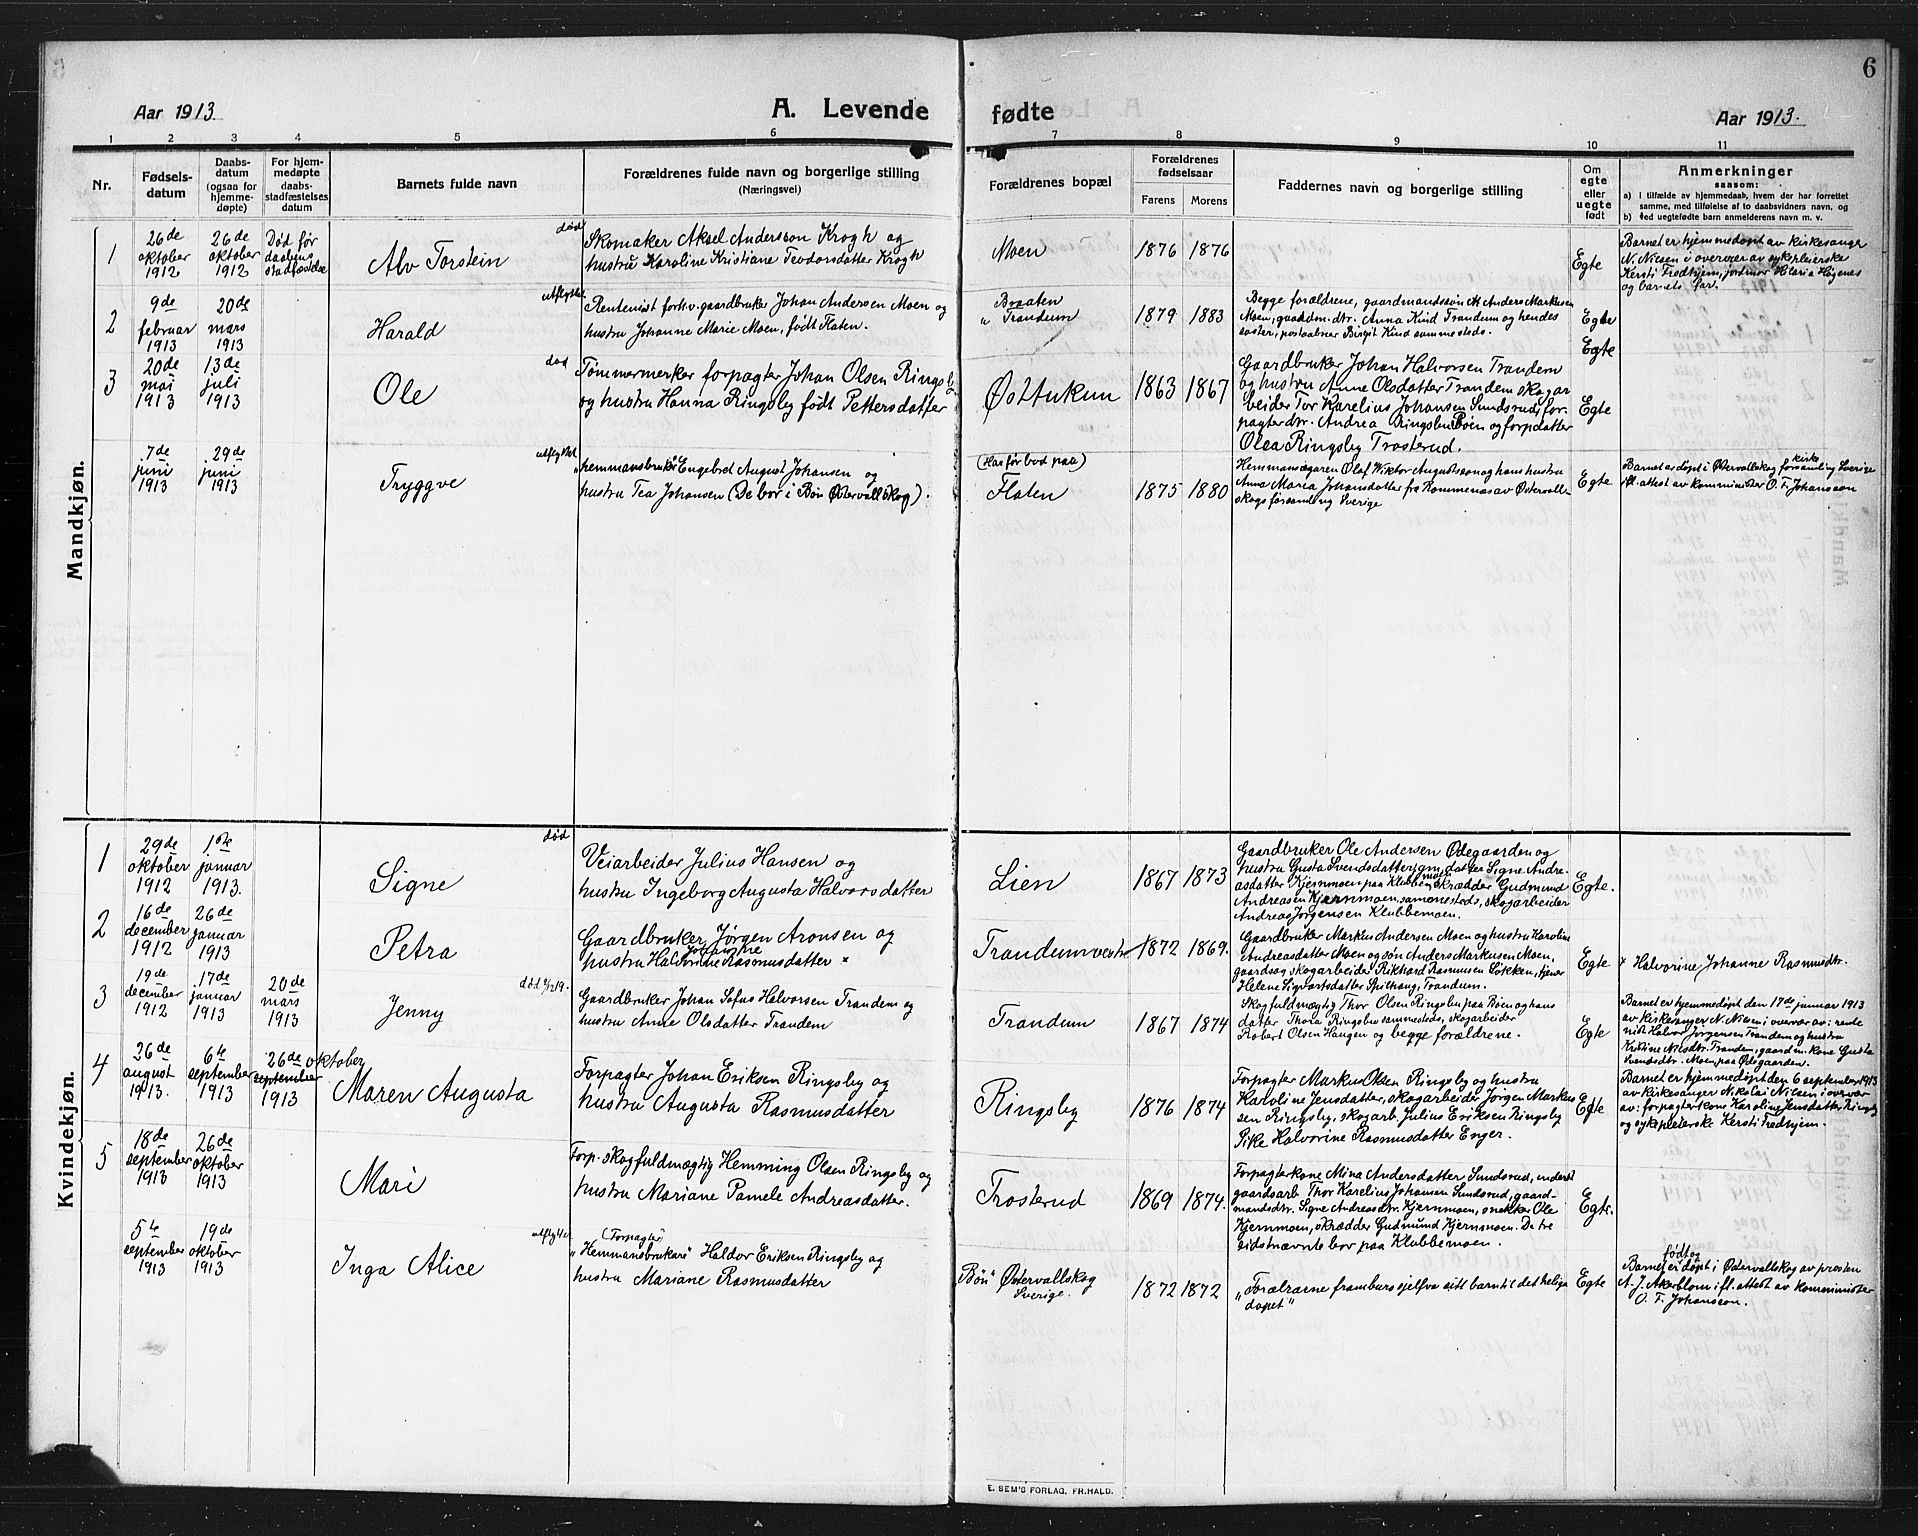 6
Aar 1913.
A. Levende
fødte
Aar 1913.
1 2 3 4 5 6 7 8 9 10 11
Nr.
Fødsels-
datum
Daabs-
datum
(ogsaa for
hjemme-
døpte)
For hjem-
medøpte
daabs-
stadfæstelses
datum
Barnets fulde navn
Forældrenes fulde navn og borgerlige stilling
(Næringsvei)
Forældrenes bopæl
Forældrenes
fødselsaar
Farens Morens
Faddernes navn og borgerlige stilling
Om
egte
eller
uegte
født
Anmerkninger
saasom:
a) I tilfælde av hjemmedaab, hvem der har forrettet
samme, med tilføielse af to daabsvidners navn, og
b) ved uegtefødte barn anmelderens navn m. v.
Mandkjøn.
1
26de
oktober
1912
26de
oktober
1912
Død før
daabens
stadfæstelse
Alv Torstein
død
Skomaker Aksel Anderssøn Krogh og
hustru Karoline Kristiane Teodorsdatter Krogh
Moen
1876 1876
Egte
Barnet er hjemmedøpt av kirkesanger
N. Nilsen i overvær av sykepleierske
Kersti Tredhjem, jordmor Maria Høgenes
og barnets far.
2
9de
februar
1913
20de
mars
1913
Harald
utflyttet
Rentenist forhv. gaardbruker Johan Andersen Moen og
hustru Johanne Marie Moen, født Flaten.
Braaten
" Trandum
1879 1883
Begge forældrene, gaardmandssøn M Anders Markusen
Moen, gaardm.dtr. Anna Kind Trandum og hendes
søster, postaabner Birgit Kind sammesteds.
Egte
Egte
3
20de
mai
1913
13de
juli
1913
Ole
død
Tømmermerker forpagter Johan Olsen Ringsby
og hustru Hanna Ringsby født Pettersdatter
Østtukun
1863 1867
Gaardbruker Johan Halvorsen Trandem
og hustru Anne Olsdatter Trandem skogar
beider Tor Karelius Johansen Sundsrud, for.
pagterdtr. Andrea Ringsby Bøen og forp.datter
Olea Ringsby Trosterud.
Egte
7de
juni
1913
29de
juni
1913
Tryggve
utflyttet
"hemmansbruker" Engebret August Johansen og
hustru Tea Johansen (De bor i Bön Østervallskog).
(Har før bod paa)
Flaten
1875 1880
Hemmansägaren Olaf Wiktor Augustsson og hans hustru
Anna Maria Johansdatter fra Rommenas av Østervall-
skogs församling Sverige
Egte
Barnet er døpt i Østervallskog kirk forsamling Sverige
ifl. attest av komminister O. F. Johansson
Kvindekjøn.
1
29de
oktober
1912
1ste
januar
1913.
Signe
død
Veiarbeider Julius Hansen og
hustru Ingeborg Augusta Halvorsdatter
Lien
1867 1873
Gaardbruker Ole Andersen Ødegaarden og
hustru Gusta Svendsdatter, gm. datter Signe Andre-
asdatter Kjernmoen paa Klubbemoen, skrædder Gudmund
Andreasen Kjernmoen, sammesteds, skogarbeider
Andreas Jørgensen Klubbemoen.
Egte.
2
16de
december
1912
26de
januar
1913
Petra
Gaardbruker Jørgen Aronsen og
Johanne
hustru Halvorine Rasmusdatter ×
Trandumvestre
1872 1869.
Gaardbruker Markus Andersen Moen og hustru Karoline
Andreasdatter Moen og søn Anders Markusen Moen,
gaardsøg skogarbeider Rikhard Rasmusen Løkken, tjener
Helene Sigvartsdatter Spilhaug, Trandum.
Egte
× Halvorine Johanne Rasmusdtr.
3
19de
december
1912
17de
januar
1913
20de
mars
1913
Jenny
Gaardbruker Johan Sofus Halvorsen Trandem og
hustru Anne Olsdatter Trandem
Trandum
1867 1874
Skogfuldmægtig Thor Olsen Ringsby paa Bøen og hans
datter Thora Ringsby sammesteds, skogarbeider
Robert Olsen Haugen og begge forældrene.
Egte
Barnet er hjemmedøpt den 17de januar 1913
av kirkesanger N. Nilsen i overvær av: rente
nist Halvor Jørgensen Trandem og hustru
Kristine Nilsdtr. Trandem, gaardm. kone Gusta
Svendsdtr. Moen paa Ødegaarden.
4
26de
august
1913.
6te
september
1913
26de oktober
september
1913
Maren Augusta
Forpagter Johan Eriksen Ringsby og
hustru Augusta Rasmusdatter
Ringsby
1876 1874
Forpagter Markus Olsen Ringsby og hustru
Karoline Jensdatter, skogarbeider Jørgen Marku
sen Ringsby, skogarb. Julius Eriksen Ringsby
Pike Halvorine Rasmusdatter Enger.
Egte
Barnet er hjemmedøpt den 6 september 1913
av kirkesanger Nikolai Nilsen i overvær
av: forpagterkone Karoline Jensdatter Ringsby
og sykepleierske Kersti Tredhjem.
5
18de
september
1913
26de
oktober
1913
Mari
Forp. skogfuldmægtig Hemming Olsen Ringsby og
hustru Mariane Pamele Andreasdatter.
Trosterud
1869 1874.
Forpagterkone Mina Andersdatter, Sundsrud, underst
gaardsarb Thor Karelius Johansen Sundsrud, gaard-
mandsdtr. Signe Andreasdtr. Kjernmoen, snekker Ole
Kjernmoen, skrædder Gudmund Kjernmoen. De tre
sidstnævnte bor paa Klubbemoen.
Egte.
5te
september
1913
19de
oktober
1913
Inga Alice
utflyttet
(Forpagter)
"Hemmansbrukare" Haldor Eriksen Ringsby og
hustru Mariane Rasmusdatter
Bön" Østervallskog
Sverige.
1872 1872
"Foralrarne framburo sjelfva sitt barn til det heliga
dopet"
Egte
født og
Barnet er døpt i Østervallskog av prosten
A. J. Akerblom ifl. attest av komminister
O. F. Johansson.
E. SEM'S FORLAG, FR.HALD.